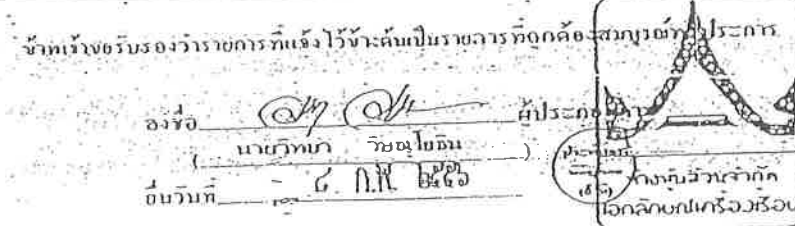 ข้าพเจ้าขอรับรองว่ารายการที่แจ้งไว้ข้างต้นเป็นรายการที่ถูกต้องสมบูรณ์ทุกประการ
ลงชื่อ ผู้ประกอบการ
( นายวิทยา วิษณุโยธิน )
ยื่นวันที่ ๔ ก.พ. ๒๕๔๖
ห้างหุ้นส่วนจำกัด
เอกลักษณ์เครื่องเรือน